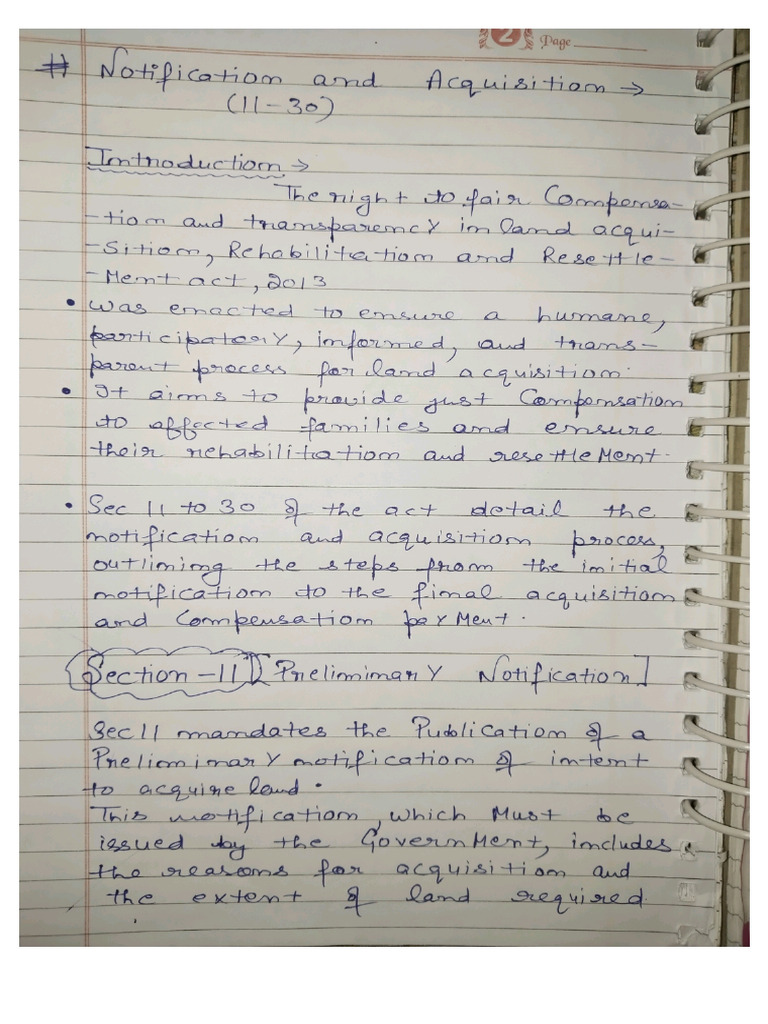 2 Page
# Notification and Acquisition →
(11-30)
Introduction →
The right to fair Compensa-
-tion and transparency in land acqui-
-Sition, Rehabilitation and Resettle-
-Ment act, 2013
• was enacted to ensure a humane,
participatory, informed, and trans-
parent process for land acquisition.
• It aims to provide just Compensation
to affected families and ensure
their rehabilitation and resettleMent.
• Sec 11 to 30 of the act detail the
notification and acquisition process,
outlining the steps from the initial
notification to the final acquisition
and Compensation payMent.
Section-11 [Preliminary Notification]
Sec 11 mandates the Publication of a
Preliminary notification of intent
to acquire land.
This notification, which Must be
issued by the GovernMent, includes
the reasons for acquisition and
the extent of land required.